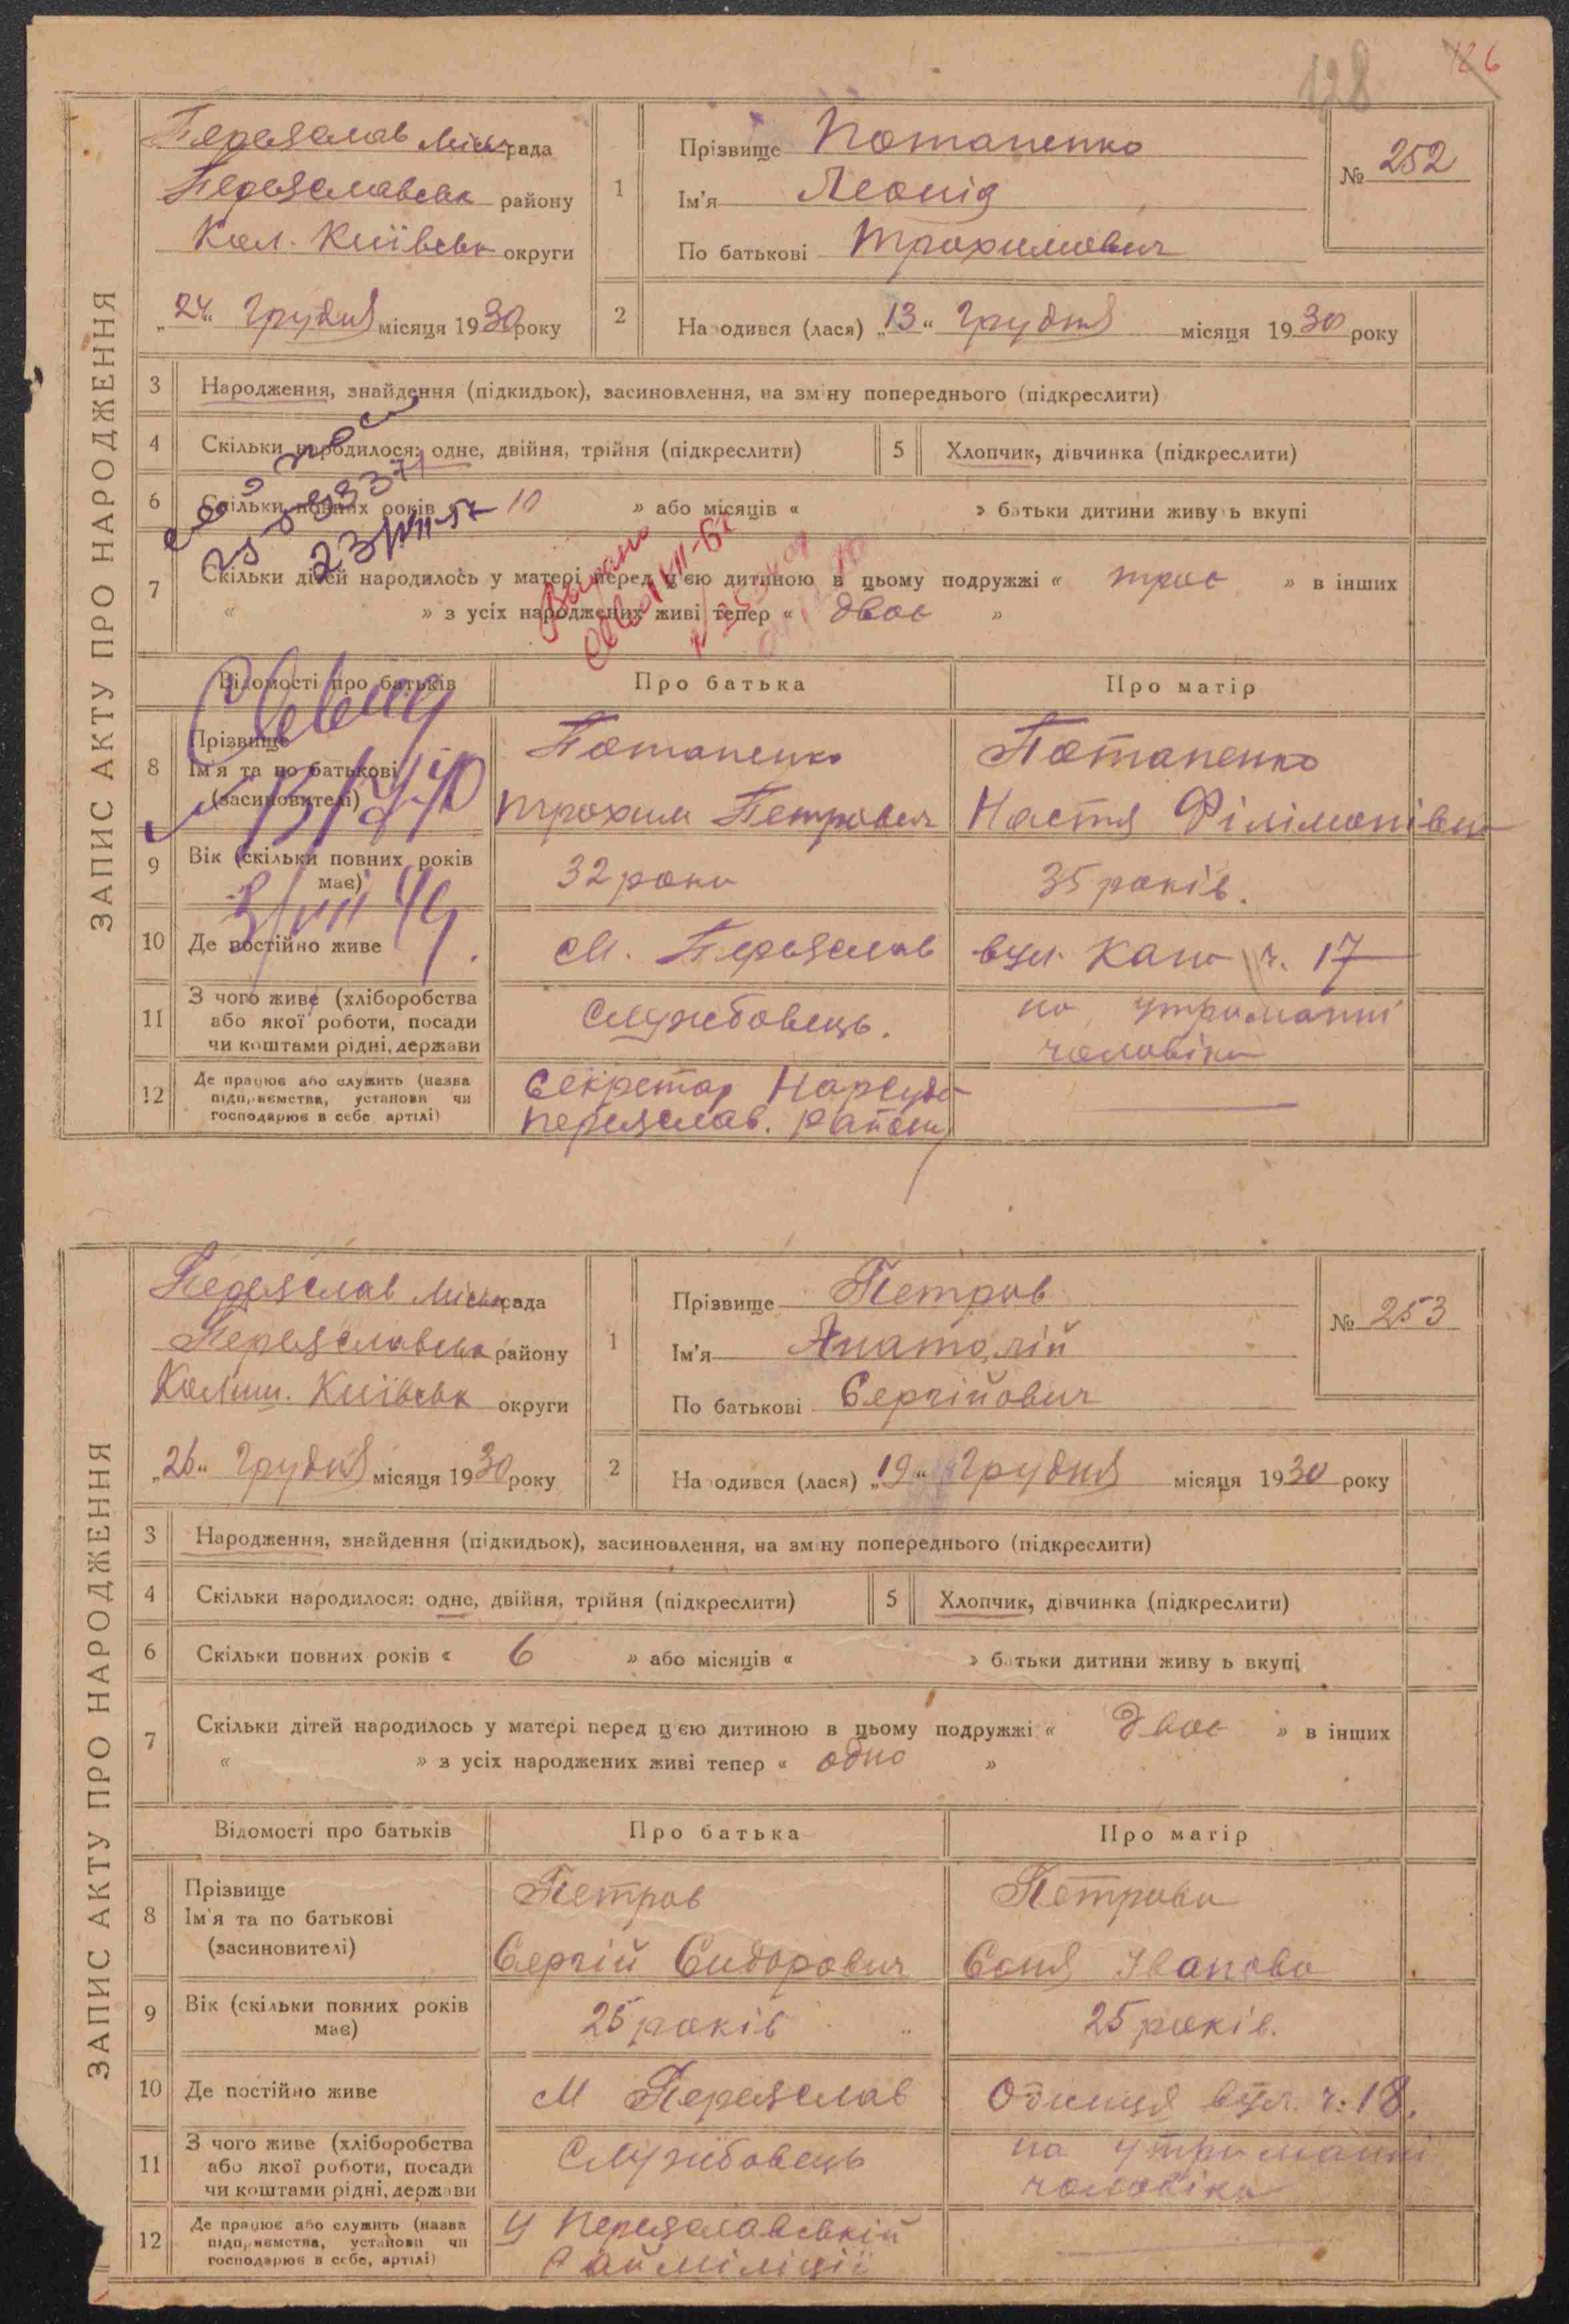 128
126
ЗАПИС АКТУ ПРО НАРОДЖЕННЯ
Переяслав Міськрада
Переяславськ району
Кол. Київськ округи
„24“ Грудня місяця 1930 року
1
Прізвище Потапенко
Ім'я Леонід
По батькові Трохимович
№ 252
2
Народився (лася) „13“ Грудня місяця 1930 року
3 Народження, знайдення (підкидьок), засиновлення, на зміну попереднього (підкреслити)
4 Скільки народилося: одне, двійня, трійня (підкреслити)
5 Хлопчик, дівчинка (підкреслити)
6 Скільки повних років « 10 » або місяців « » батьки дитини живуть вкупі
23/VII-57
7 Скільки дітей народилось у матері перед цією дитиною в цьому подружжі « троє » в інших
« » з усіх народжених живі тепер « двоє »
Видано
Відомості про батьків
Про батька
Про матір
8 Прізвище
Ім'я та по батькові
(засиновителі)
Потапенко
Трохим Петрович
Потапенко
Настя Філімонівна
9 Вік (скільки повних років
має)
32 роки
35 років.
10 Де постійно живе
м. Переяслав
вул. Кано ч. 17
11 З чого живе (хліборобства
або якої роботи, посади
чи коштами рідні, держави
Службовець.
на утриманні
чоловіка
12 Де працює або служить (назва
підприємства, установи чи
господарює в себе артілі)
Секретар Нарсуда
Переяслав. Району
ЗАПИС АКТУ ПРО НАРОДЖЕННЯ
Переяслав Міськрада
Переяславськ району
Колиш. Київськ округи
„26“ Грудня місяця 1930 року
1
Прізвище Петров
Ім'я Анатолій
По батькові Сергійович
№ 253
2
Народився (лася) „19“ Грудня місяця 1930 року
3 Народження, знайдення (підкидьок), засиновлення, на зміну попереднього (підкреслити)
4 Скільки народилося: одне, двійня, трійня (підкреслити)
5 Хлопчик, дівчинка (підкреслити)
6 Скільки повних років « 6 » або місяців « » батьки дитини живуть вкупі
7 Скільки дітей народилось у матері перед цією дитиною в цьому подружжі « двоє » в інших
« » з усіх народжених живі тепер « одно »
Відомості про батьків
Про батька
Про матір
8 Прізвище
Ім'я та по батькові
(засиновителі)
Петров
Сергій Сидорович
Петрова
Соня Іванова
9 Вік (скільки повних років
має)
25 років
25 років.
10 Де постійно живе
м Переяслав
вул. ч. 18.
11 З чого живе (хліборобства
або якої роботи, посади
чи коштами рідні, держави
Службовець
на утриманні
чоловіка
12 Де працює або служить (назва
підприємства, установи чи
господарює в себе, артілі)
У Переяславській
Райміліції